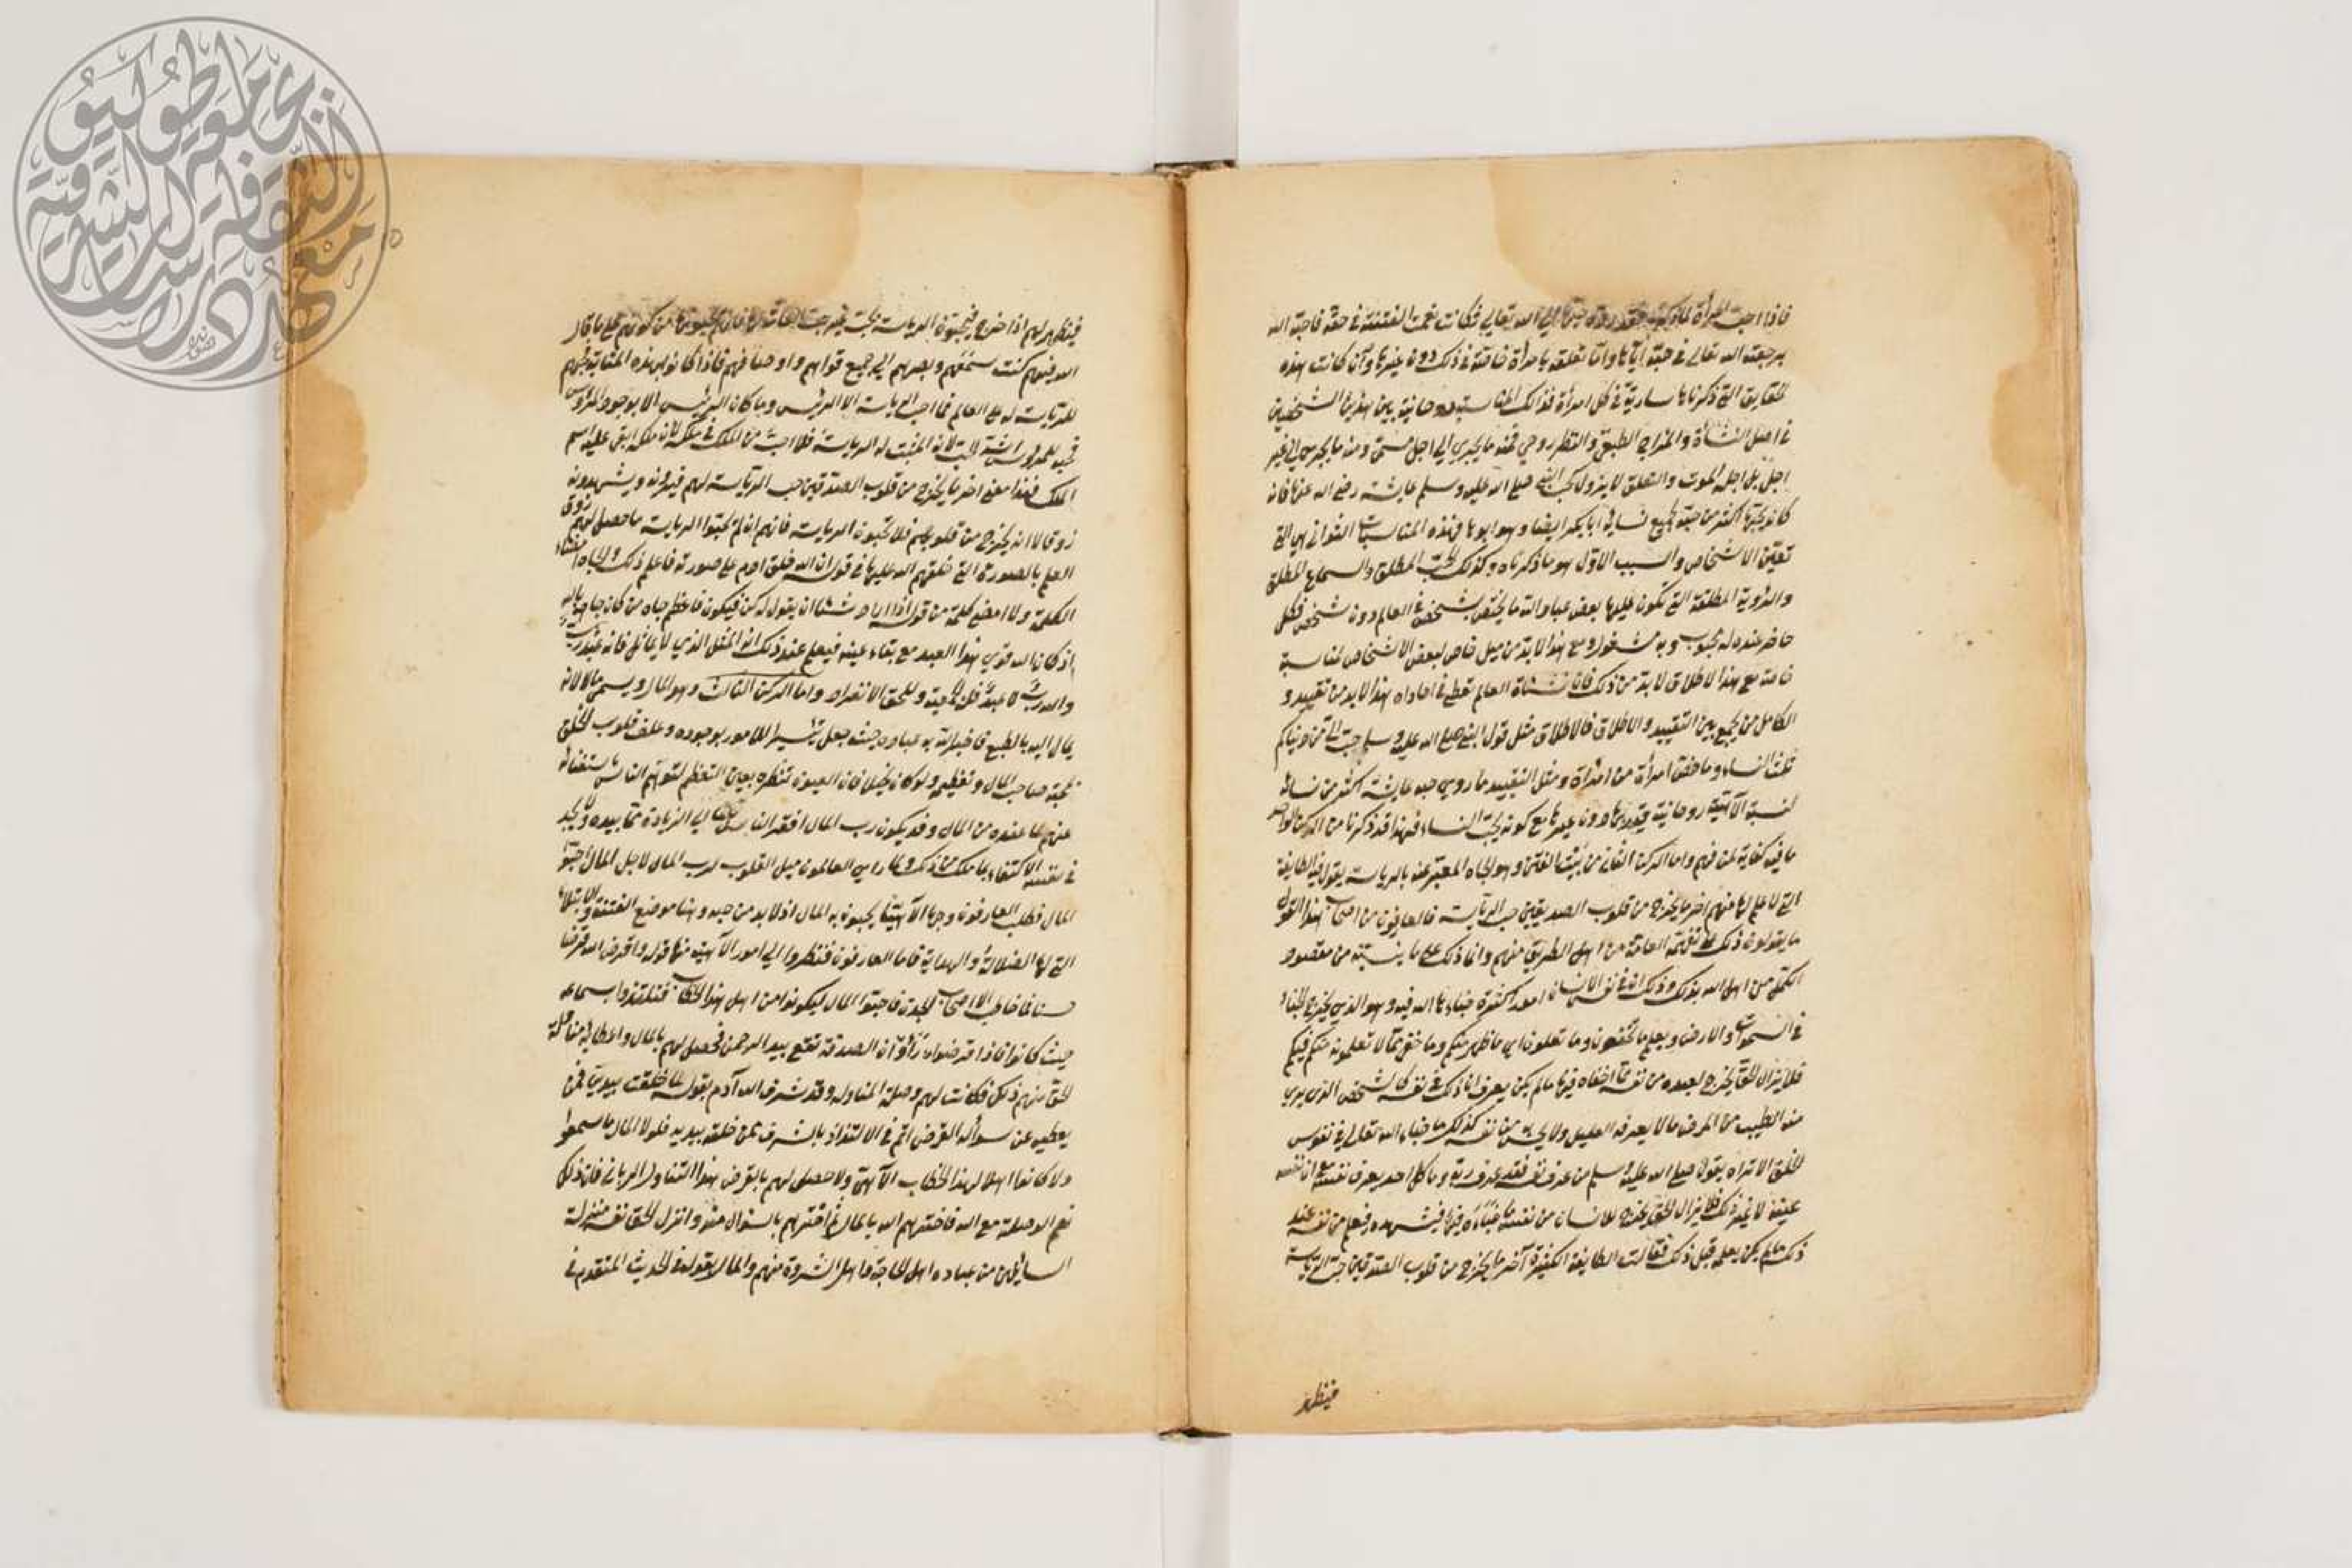 فاذا احب المرأة لما ذكرناه فقد رده حبها الى الله تعالى فكانت نعمت الفتنة في حقه فاحبه الله
برجعته الله تعالى في حبه اياها واما تعلقه بامرأة خاصة في ذلك دون غيرها وان كانت هذه
الحقايق التي ذكرناها سارية في كل امرأة فذلك لمناسبة روحانية بين هذين الشخصين
في اصل النشأة والمزاج الطبيعي والنظر روحي فمنه ما يجري الى اجل مسمى ومنه ما يجري الى غير
اجل بل اجله الموت والتعلق لا يزول كحب النبي صلى الله عليه وسلم عايشة رضي الله عنها فانه
كان يحبها اكثر من حبه جميع نسائه وحبه ابا بكر ايضا وهو ابوها فهذه المناسبات الثواني هي التي
تعين الاشخاص والسبب الاول هو ما ذكرناه وكذلك الحب المطلق والسماع المطلق
والرؤية المطلقة التي تكون عليها بعض عباد الله ما يختص بشخص في العالم دون شخص فكل
حاضر عنده له محبوب وبه مشغول ومع هذا لابد من ميل خاص لبعض الاشخاص لمناسبة
خاصة مع هذا الاطلاق لابد من ذلك فان نشأة العالم تعطي في احاده هذا لابد من تقييد و
الكامل من يجمع بين التقييد والاطلاق فالاطلاق مثل قول النبي صلى الله عليه وسلم حبب الى من دنياكم
ثلث النساء وما خص امرأة من امرأة ومثل التقييد ما روي حبه عايشة اكثر من نسائه
لنسبة الآهية روحانية قيده بها دون غيرها مع كونه يحب النساء فهذا قد ذكرنا من الركن الواحد
ما فيه كفاية لمن فهم واما الركن الثاني من بيت الفتن وهو الجاه المعبر عنه بالرياسة يقول فيه الطايفة
التي لا علم لها منهم آخر ما يخرج من قلوب الصديقين حب الرياسة فالعارفون من اصحاب هذا القول
ما يقولون ذلك على ما تفهمه العامة من اهل الطريق منهم وانما ذلك على ما نبينه من مقصود
الكمل من اهل الله بذلك وذلك ان في نفس الانسان امورا كثيرة خباءها الله فيه وهو الذي يخرج الخباء
في السموات والارض ويعلم ما تخفون وما تعلنون اي ما ظهر منكم وما خفي مما لا تعلمونه منكم فيكم
فلا يزال الحق يخرج لعبده من نفسه مما اخفاه فيها ما لم يكن يعرف ان ذلك في نفسه كالشخص الذي يرى
منه الطبيب من المرض ما لا يعرفه العليل ولا يحس به من نفسه كذلك ما خباء الله تعالى في نفوس
الخلق الا تراه يقول صلى الله عليه وسلم من عرف نفسه فقد عرف ربه وما كل احد يعرف نفسه مع ان نفسه
عينه لا غير ذلك فلا يزال الحق يخرج للانسان من نفسه ما خباءه فيها فيشهده فيعلم من نفسه عند
ذلك ما لم يكن يعلمه قبل ذلك فقالت الطايفة الكثيرة آخر ما يخرج من قلوب الصديقين حب الرياسة
فيظهر
فيظهر لهم اذا خرج فيحبون الرياسة بحب غير حب العامة لها فانهم يحبونها من كونهم على ما قال
الله فيهم كنت سمعهم وبصرهم الى جميع قواهم واوصافهم فاذا كانوا بهذه المثابة فمنهم
للرياسة له على العالم فما احب الرياسة الا الرئيس وما كان الرئيس الا بوجود المرؤس
فحبه للمرؤس اشد الحب لانه المثبت له الرياسة فلا احب من الملك في ملكه لان ملكه ابقى عليه اسم
الملك فهذا معنى اخر ما يخرج من قلوب الصديقين حب الرياسة لهم فيرونه ويشهدونه
ذوقا لا انه يخرج من قلوبهم فلا يحبون الرياسة فانهم ان لم يحبوا الرياسة ما حصل لهم ذوق
العلم بالصورة التي خلقهم الله عليها في قوله ان الله خلق ادم على صورته فاعلم ذلك والجاه امضاء
الكلمة ولا امضى كلمة من قوله اذا اراد شيئا ان يقول له كن فيكون فاعظم جاه من كان جاهه بالله
اذ كان الله قوي هذا العبد مع بقاء عينه فيعلم عند ذلك انه المثل الذي لا يماثل فانه عبد رب
والله رب لا عبد فله الجمعية وللحق الانفراد واما الركن الثالث وهو المال ويسمى مالا لانه
يمال اليه بالطبع فاختبر الله به عباده حيث جعل تيسير الامور بوجوده وعلق قلوب الخلق
بمحبة صاحب المال وتعظيمه ولو كان بخيلا فان العيون تنظره بعين التعظيم لتوهم الناس استغنائه
عنهم لما عنده من المال وقد يكون رب المال افقر الناس الى الزيادة مما بيده ولا يجد
في نفسه الاكتفاء بما ملك من ذلك ولما راى العالمون ميل القلوب لرب المال لاجل المال احبوا
المال فطلب العارفون وجها الآهيا يحبون به المال اذ لابد من حبه وهنا موضع الفتنة والابتلاء
التي لها الضلالة والهداية فاما العارفون فنظروا الى امور الآهية منها قوله واقرضوا الله قرضا
حسنا فما خاطب الا اصحاب الجدة فاحبوا المال ليكونوا من اهل هذا الخطاب فتلذذوا بسماعه
حيث كانوا فاذا اقرضوه رأوا ان الصدقة تقع بيد الرحمن فحصل لهم بالمال واعطائه مناولة
الحق منهم ذلك فكانت لهم وصلة المناولة وقد شرف الله آدم بقوله لما خلقت بيدي فمن
يعطيه عن سؤاله القرض اتم في الالتذاذ بالشرف ممن خلقه بيديه فلولا المال ما سمعوا
ولا كانوا اهلا لهذا الخطاب الآلهي ولا حصل لهم بالقرض هذا التناول الرباني فان ذلك
نعم الوصلة مع الله فاختبرهم الله بالمال ثم اختبرهم بالسؤال منه وانزل الحق نفسه منزلة
السائلين من عباده اهل الحاجة اهل الثروة منهم والمال بقوله في الحديث المتقدم في